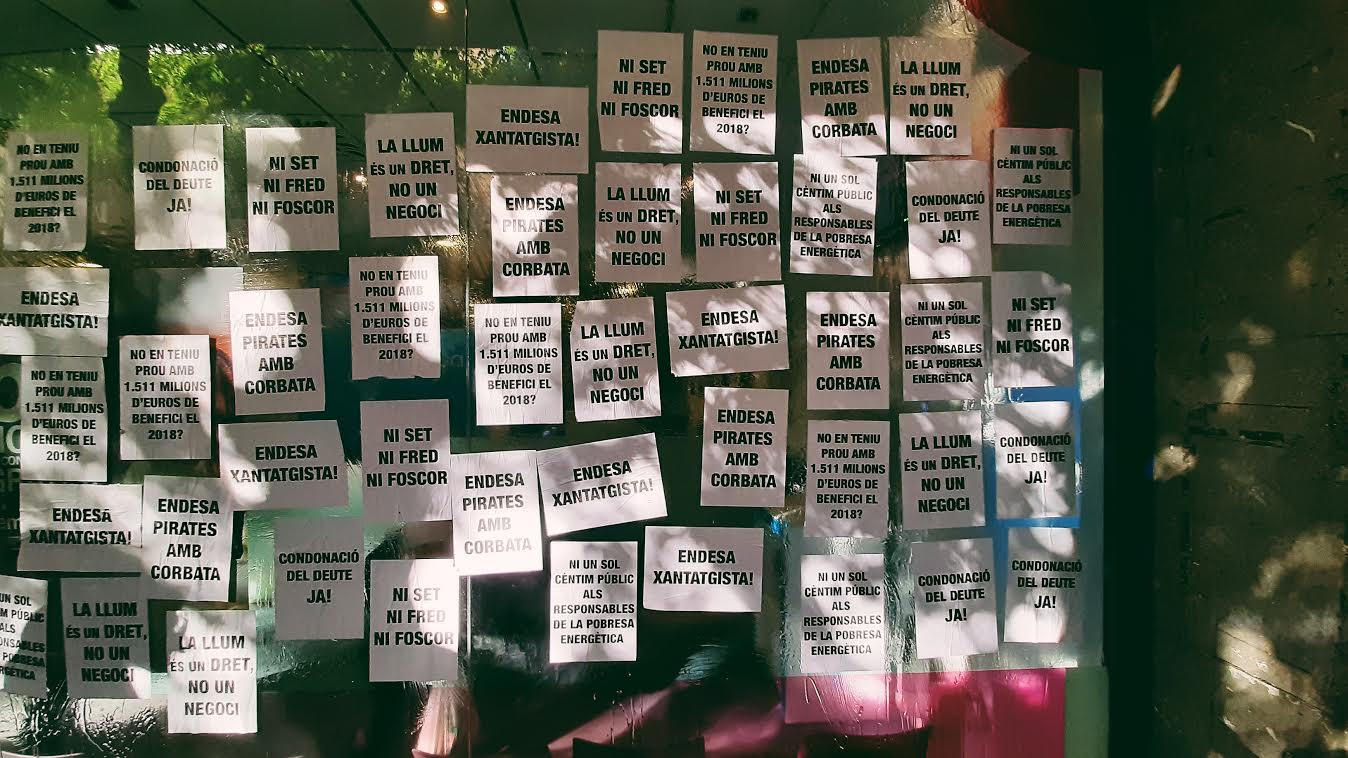 NI SET
NI FRED
NI FOSCOR
NO EN TENIU
PROU AMB
1.511 MILIONS
D'EUROS DE
BENEFICI EL
2018?
ENDESA
PIRATES
AMB
CORBATA
LA LLUM
ÉS UN DRET,
NO UN
NEGOCI
NO EN TENIU
PROU AMB
1.511 MILIONS
D'EUROS DE
BENEFICI EL
2018?
CONDONACIÓ
DEL DEUTE
JA!
NI SET
NI FRED
NI FOSCOR
LA LLUM
ÉS UN DRET,
NO UN
NEGOCI
ENDESA
XANTATGISTA!
ENDESA
PIRATES
AMB
CORBATA
LA LLUM
ÉS UN DRET,
NO UN
NEGOCI
NI SET
NI FRED
NI FOSCOR
NI UN SOL
CÈNTIM PÚBLIC
ALS
RESPONSABLES
DE LA POBRESA
ENERGÈTICA
CONDONACIÓ
DEL DEUTE
JA!
NI UN SOL
CÈNTIM PÚBLIC
ALS
RESPONSABLES
DE LA POBRESA
ENERGÈTICA
ENDESA
XANTATGISTA!
ENDESA
PIRATES
AMB
CORBATA
NO EN TENIU
PROU AMB
1.511 MILIONS
D'EUROS DE
BENEFICI EL
2018?
NO EN TENIU
PROU AMB
1.511 MILIONS
D'EUROS DE
BENEFICI EL
2018?
LA LLUM
ÉS UN DRET,
NO UN
NEGOCI
ENDESA
XANTATGISTA!
ENDESA
PIRATES
AMB
CORBATA
NI UN SOL
CÈNTIM PÚBLIC
ALS
RESPONSABLES
DE LA POBRESA
ENERGÈTICA
NI SET
NI FRED
NI FOSCOR
NO EN TENIU
PROU AMB
1.511 MILIONS
D'EUROS DE
BENEFICI EL
2018?
NO EN TENIU
PROU AMB
1.511 MILIONS
D'EUROS DE
BENEFICI EL
2018?
ENDESA
XANTATGISTA!
NI SET
NI FRED
NI FOSCOR
ENDESA
PIRATES
AMB
CORBATA
ENDESA
XANTATGISTA!
ENDESA
PIRATES
AMB
CORBATA
NO EN TENIU
PROU AMB
1.511 MILIONS
D'EUROS DE
BENEFICI EL
2018?
LA LLUM
ÉS UN DRET,
NO UN
NEGOCI
CONDONACIÓ
DEL DEUTE
JA!
ENDESA
XANTATGISTA!
ENDESA
PIRATES
AMB
CORBATA
CONDONACIÓ
DEL DEUTE
JA!
NI SET
NI FRED
NI FOSCOR
NI UN SOL
CÈNTIM PÚBLIC
ALS
RESPONSABLES
DE LA POBRESA
ENERGÈTICA
ENDESA
XANTATGISTA!
NI UN SOL
CÈNTIM PÚBLIC
ALS
RESPONSABLES
DE LA POBRESA
ENERGÈTICA
CONDONACIÓ
DEL DEUTE
JA!
CONDONACIÓ
DEL DEUTE
JA!
UN SOL
PÚBLIC
ALS
POBRESA
LA LLUM
ÉS UN DRET,
NO UN
NEGOCI
LA LLUM
ÉS UN DRET,
NO UN
NEGOCI